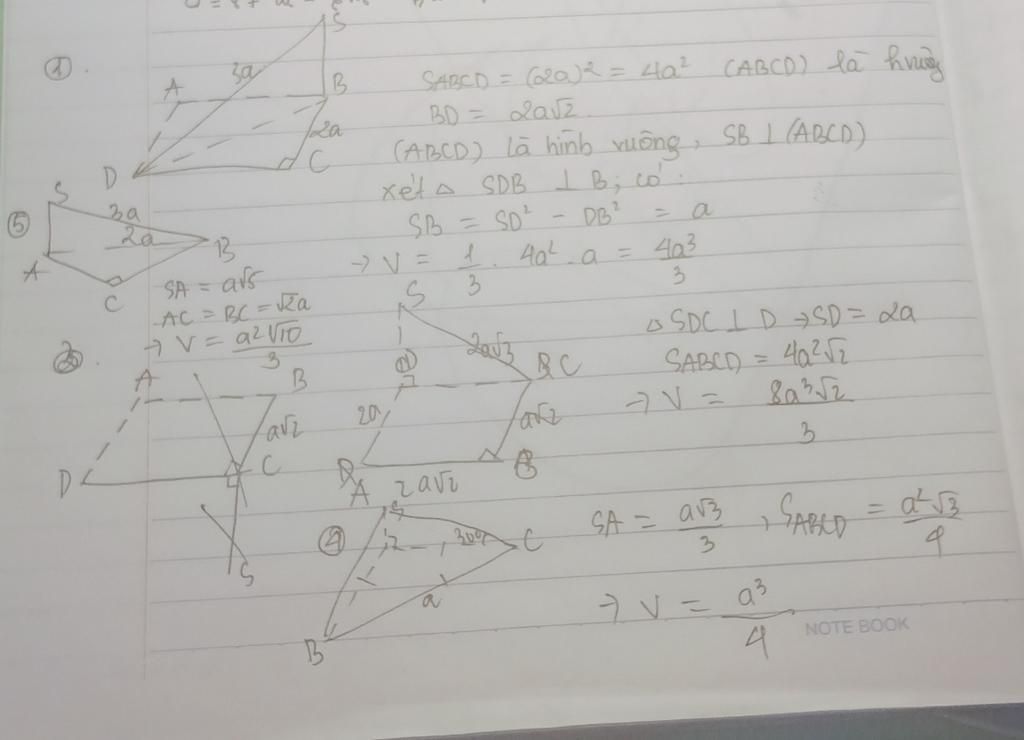 ①.
S
3a
A
B
2a
D
C
SABCD = (2a)² = 4a² (ABCD) là hvuông
BD = 2a√2.
(ABCD) là hình vuông, SB ⊥ (ABCD)
xét △ SDB ⊥ B, có:
SB = SD² - DB² = a
→ V = 1/3 . 4a² . a = 4a³/3
⑤
S
3a
2a
A
B
C
SA = a√5
AC = BC = √2a
→ V = a²√10/3
A
B
a√2
D
C
S
S
2a√3
C
2a
a√2
A
B
2a√2
△ SDC ⊥ D → SD = 2a
SABCD = 4a²√2
→ V = 8a³√2/3
④
S
30°
C
a
B
SA = a√3/3, SABCD = a²√3/4
→ V = a³/4
NOTE BOOK